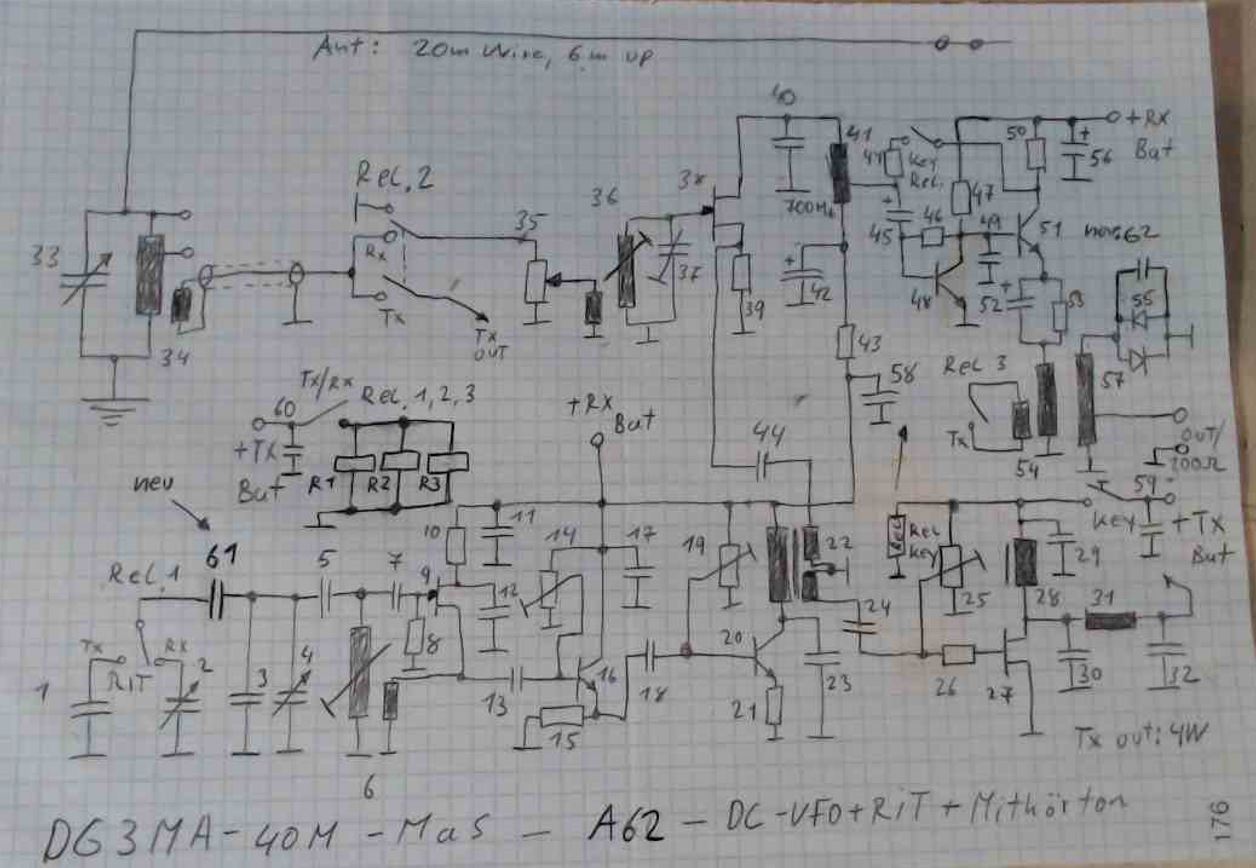 Ant: 20m Wire, 6m up
40
+Rx
Bat
Rel. 2
35
36
38
41
Key
Rel.
50
56
47
46
49
51
45
700Mh
48
52
53
55
33
Rx
37
39
42
Tx
Tx
out
34
43
58
Rel 3
57
Tx
54
out/
200Ω
60
Tx/Rx
Rel. 1, 2, 3
+TX
Bat
R1
R2
R3
+RX
Bat
44
neu
10
11
14
17
19
22
Rel
Key
Key
59
+Tx
Bat
Rel. 1
61
5
7
9
12
29
24
25
28
31
Tx
Rx
RIT
1
2
3
4
8
13
16
18
20
23
26
27
30
32
15
21
6
Tx out: 4W
DG3MA-40M-MaS - A62 - DC-VFO+RiT+Mithörton
176